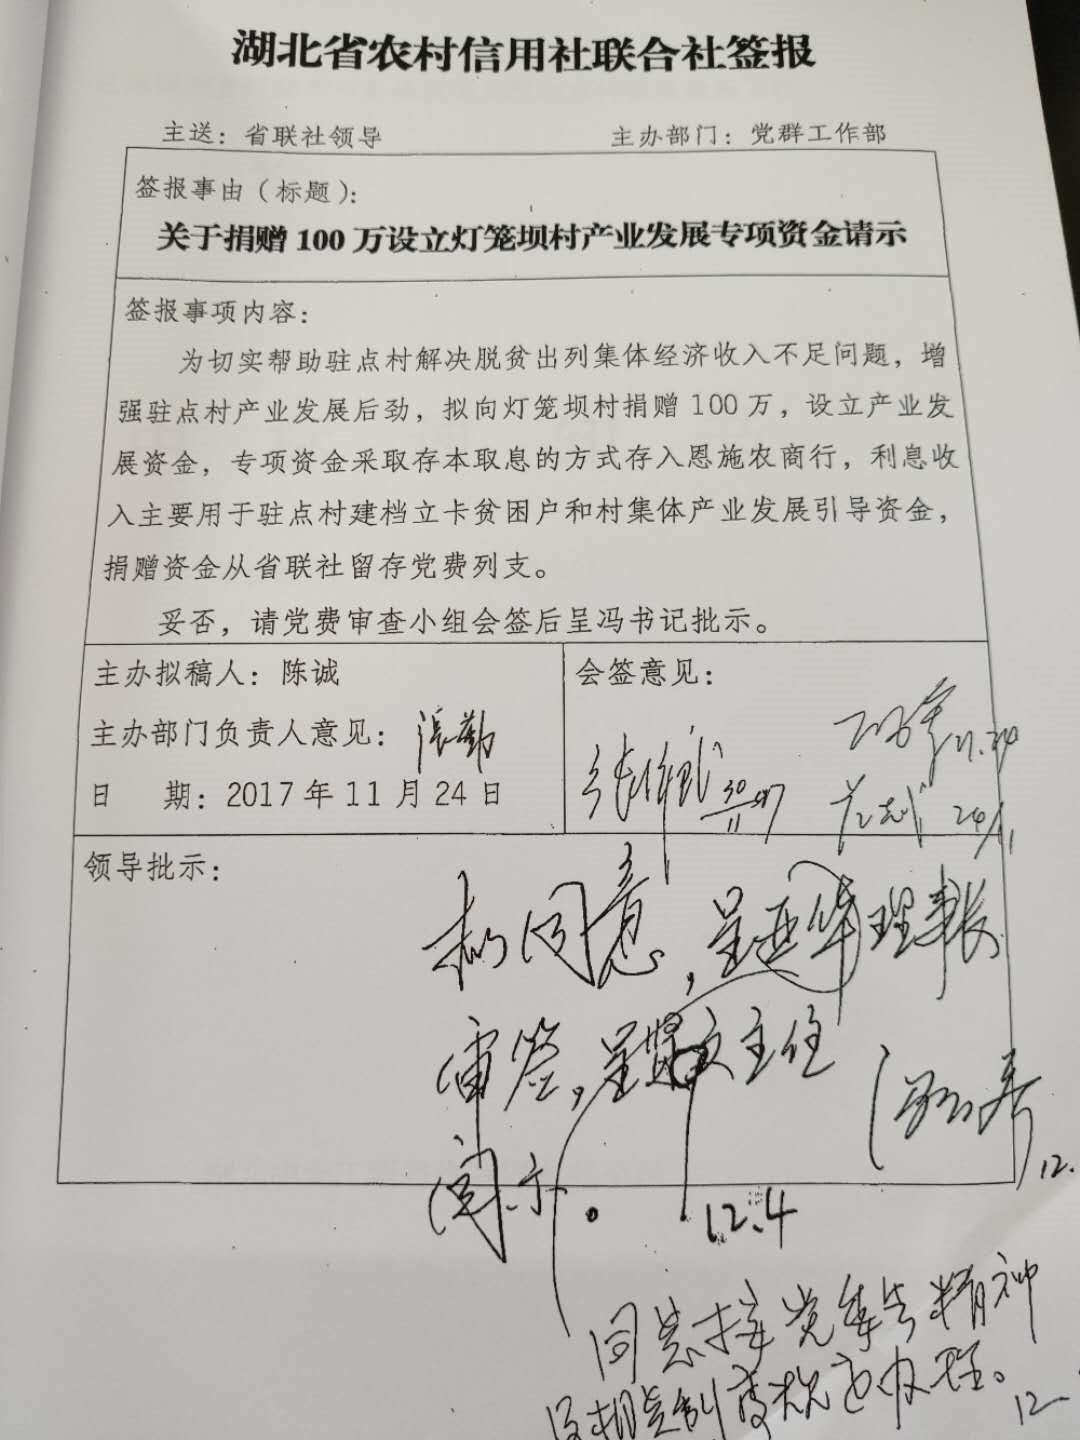 湖北省农村信用社联合社签报
主送：省联社领导 主办部门：党群工作部
签报事由（标题）：
关于捐赠100万设立灯笼坝村产业发展专项资金请示
签报事项内容：
为切实帮助驻点村解决脱贫出列集体经济收入不足问题，增
强驻点村产业发展后劲，拟向灯笼坝村捐赠100万，设立产业发
展资金，专项资金采取存本取息的方式存入恩施农商行，利息收
入主要用于驻点村建档立卡贫困户和村集体产业发展引导资金，
捐赠资金从省联社留存党费列支。
妥否，请党费审查小组会签后呈冯书记批示。
主办拟稿人：陈诚
主办部门负责人意见：张勤
日 期：2017年11月24日
会签意见：
11.24
30/11
24/11
领导批示：
拟同意，呈亚华理事长
审签，呈 主任
阅示。
12.
12.4
同意按党委会精神
及相关制度规定办理。
12.